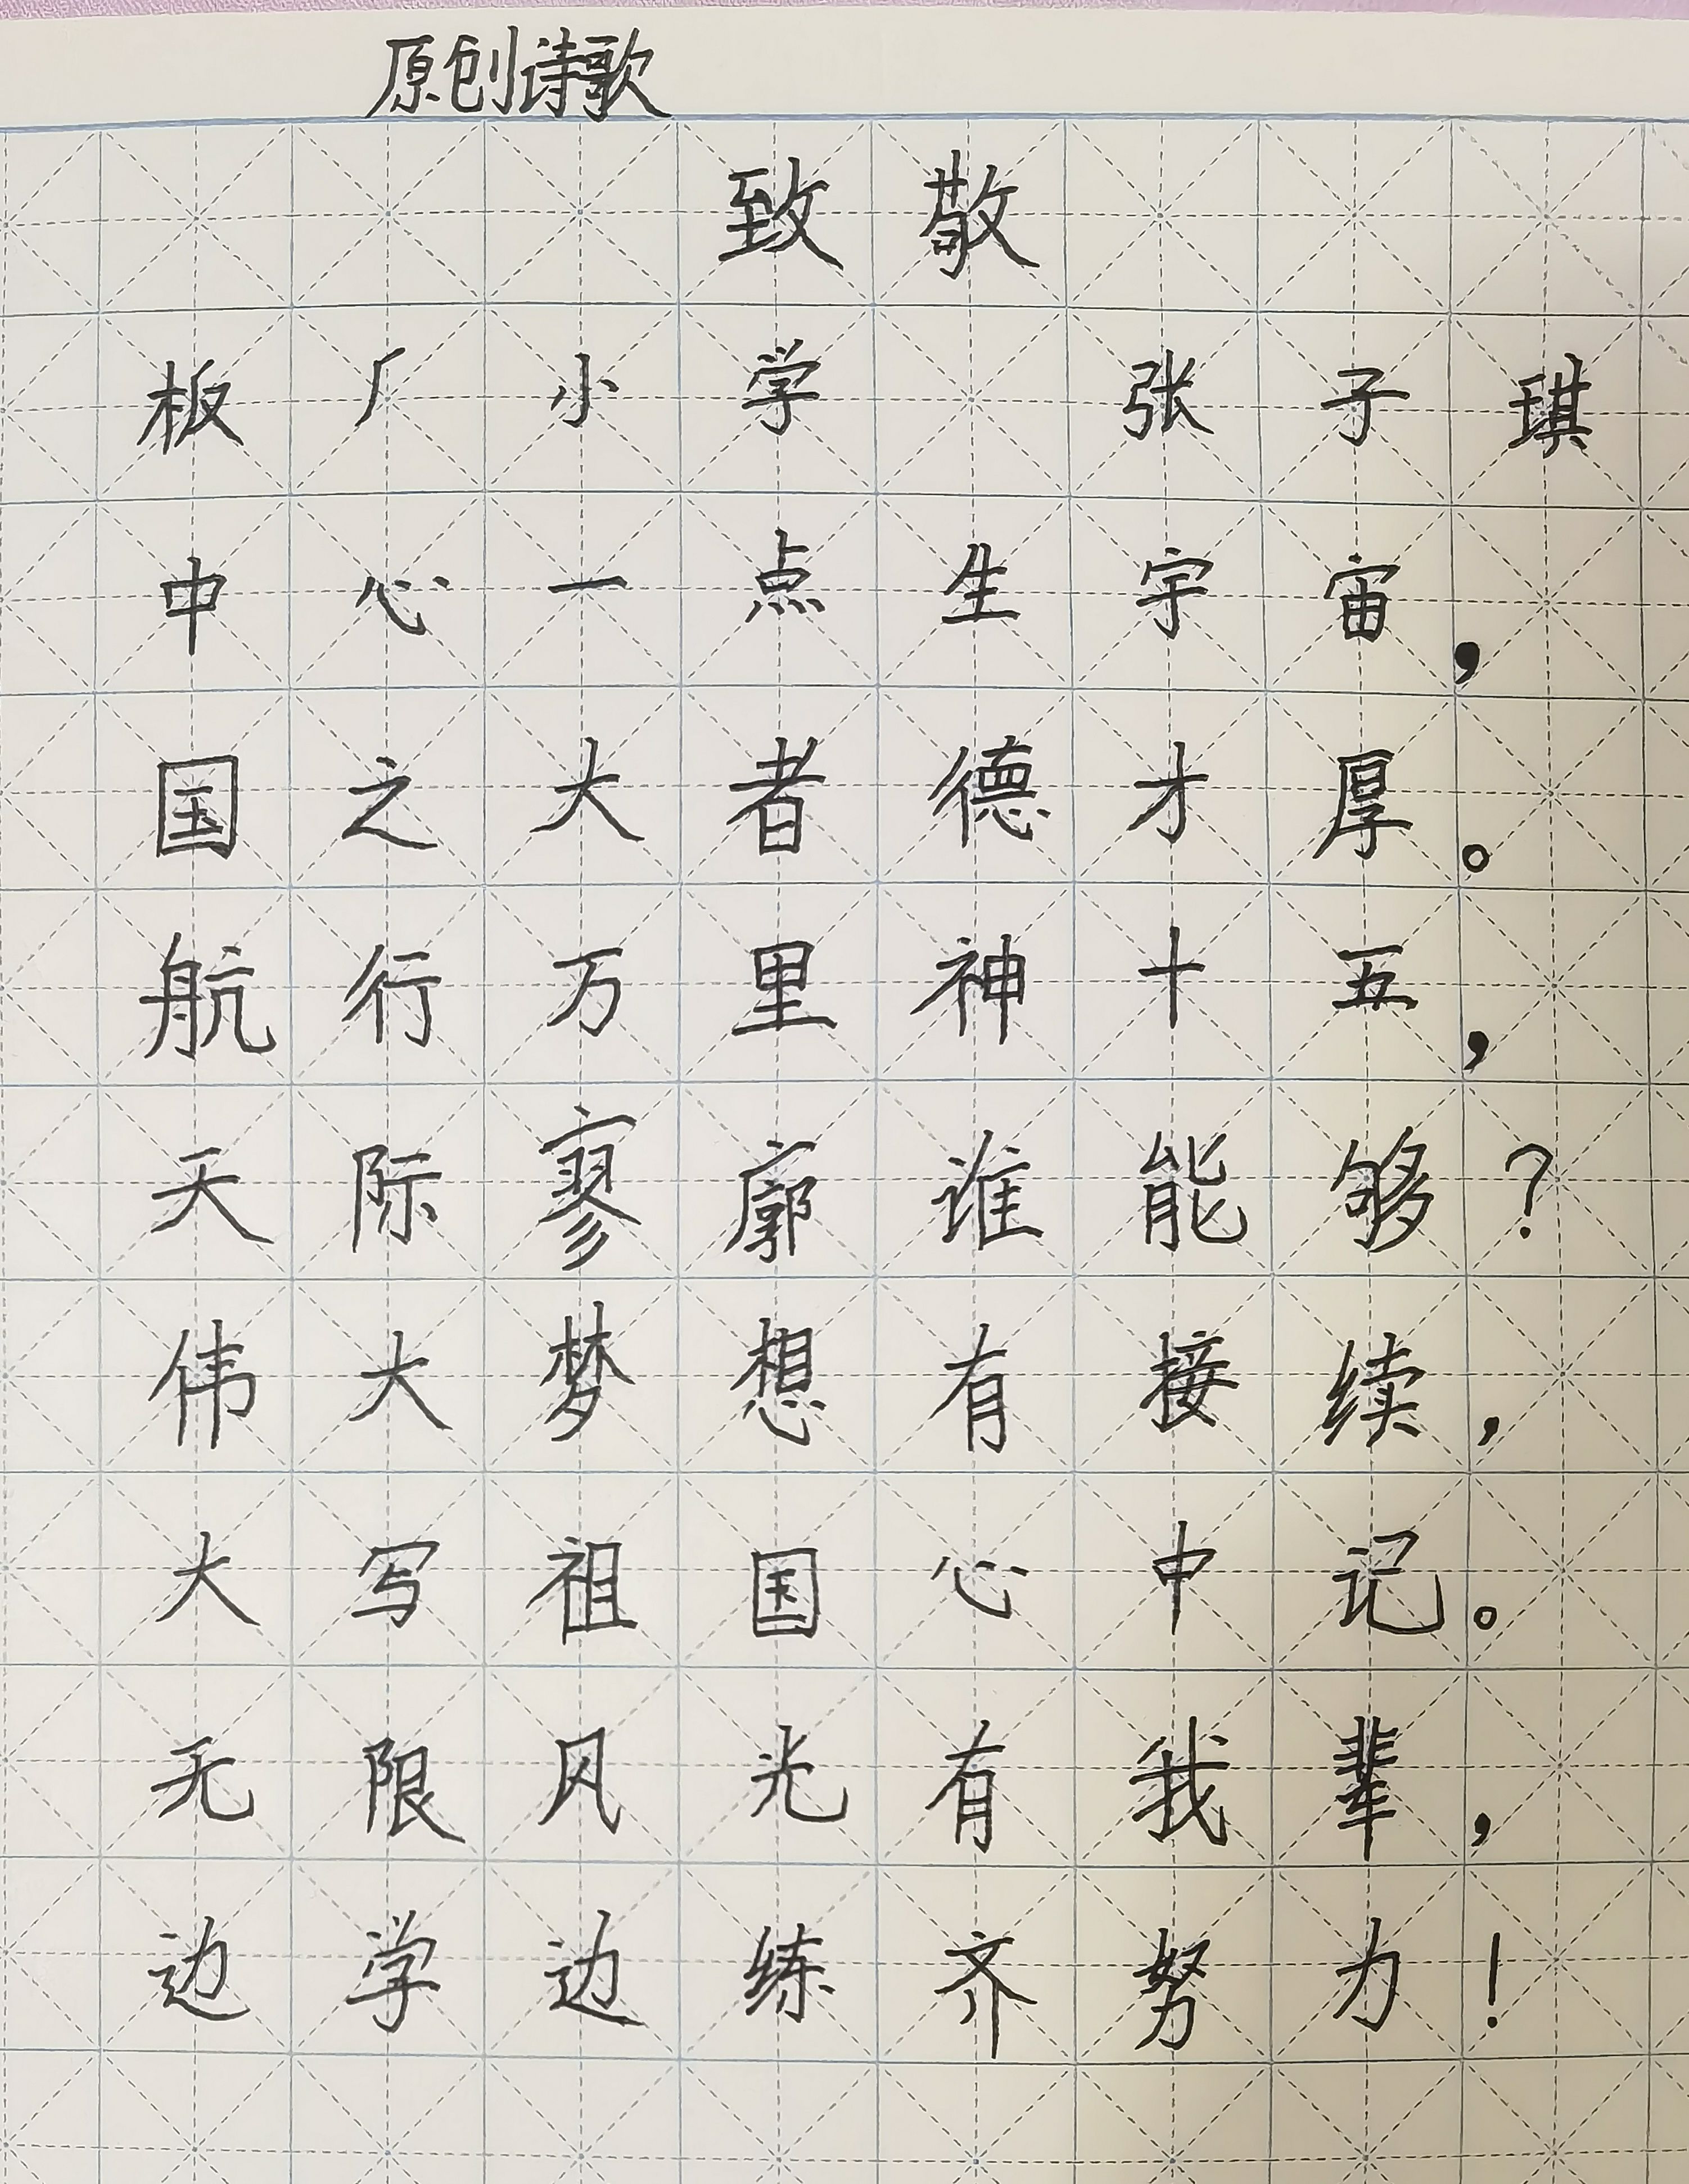 原创诗歌
致敬
板厂小学 张子琪
中心一点生宇宙，
国之大者德才厚。
航行万里神十五，
天际寥廓谁能够？
伟大梦想有接续，
大写祖国心中记。
无限风光有我辈，
边学边练齐努力！